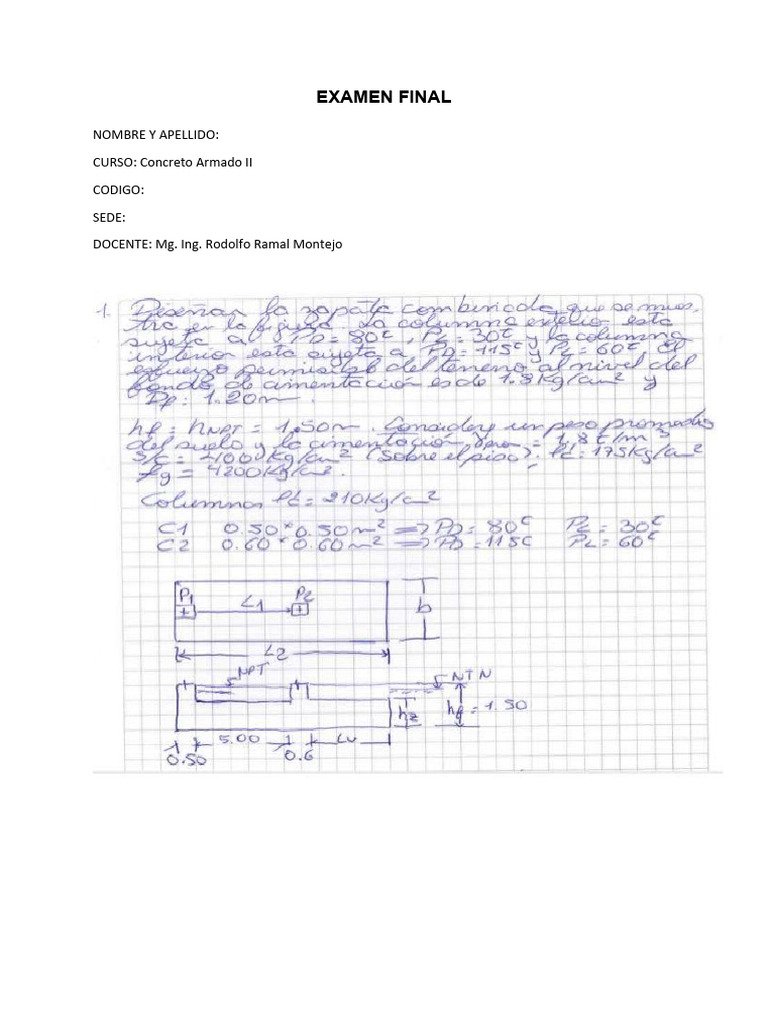 EXAMEN FINAL
NOMBRE Y APELLIDO:
CURSO: Concreto Armado II
CODIGO:
SEDE:
DOCENTE: Mg. Ing. Rodolfo Ramal Montejo
1. Diseñar la zapata combinada que se mues,
tra en la figura. La columna exterior esta
sujeta a PD = 80t, PL = 30t y la columna
interior esta sujeta a PD = 115t y PL = 60t, El
esfuerzo permisible del terreno al nivel del
fondo de cimentación es de kg/cm2 y
Df = 1.20m.
hf = hNPT = 1.50m. Considere un peso promedio
del suelo y la cimentación, = 1,8t/m3
S/C = kg/cm2 (Sobre el piso). f'c = 175kg/cm2
fy = 4200kg/cm2.
Columnas f'c = 210kg/cm2
C1 0.50*0.50m2 => PD = 80t PL = 30t
C2 0.60*0.60m2 => PD = 115t PL = 60t
P1 L1 P2 b
L2
NPT NTN
hz hf = 1.50
5.00 Lv
0.50 0.6